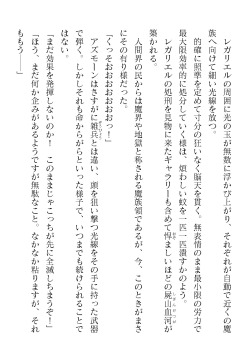 レガリエルの周囲に光の玉が無数に浮かび上がり、それぞれが自動で近くの魔
族へ向けて細い光線を放つ。
的確に照準を定めて寸分の狂いなく脳天を貫く。無表情のまま最小限の労力で
最大限効率的に処分していく様は、煩わしい蚊を一匹一匹潰すかのよう。
レガリエルの処刑を見物に来たギャラリーも含めて悍ましいほどの屍山血河が
築かれる。
人間界の民からは魔界や地獄と称される魔族領であるが、今、このときがまさ
にその有り様だった。
「くっそおおおおおおおっ！」
アズモーンはさすがに雑兵とは違い、頭を狙い撃つ光線をその手に持った武器
で弾く。しかしそれも命からがらといった様子で、いつまでも続けられることで
はない。
「まだ効果を発揮しないのか！　このままじゃこっちが先に全滅しちまうぞ！」
「ほう、まだ何か企みがあるようですが無駄なこと。なかなか粘りますが、それ
ももう――」